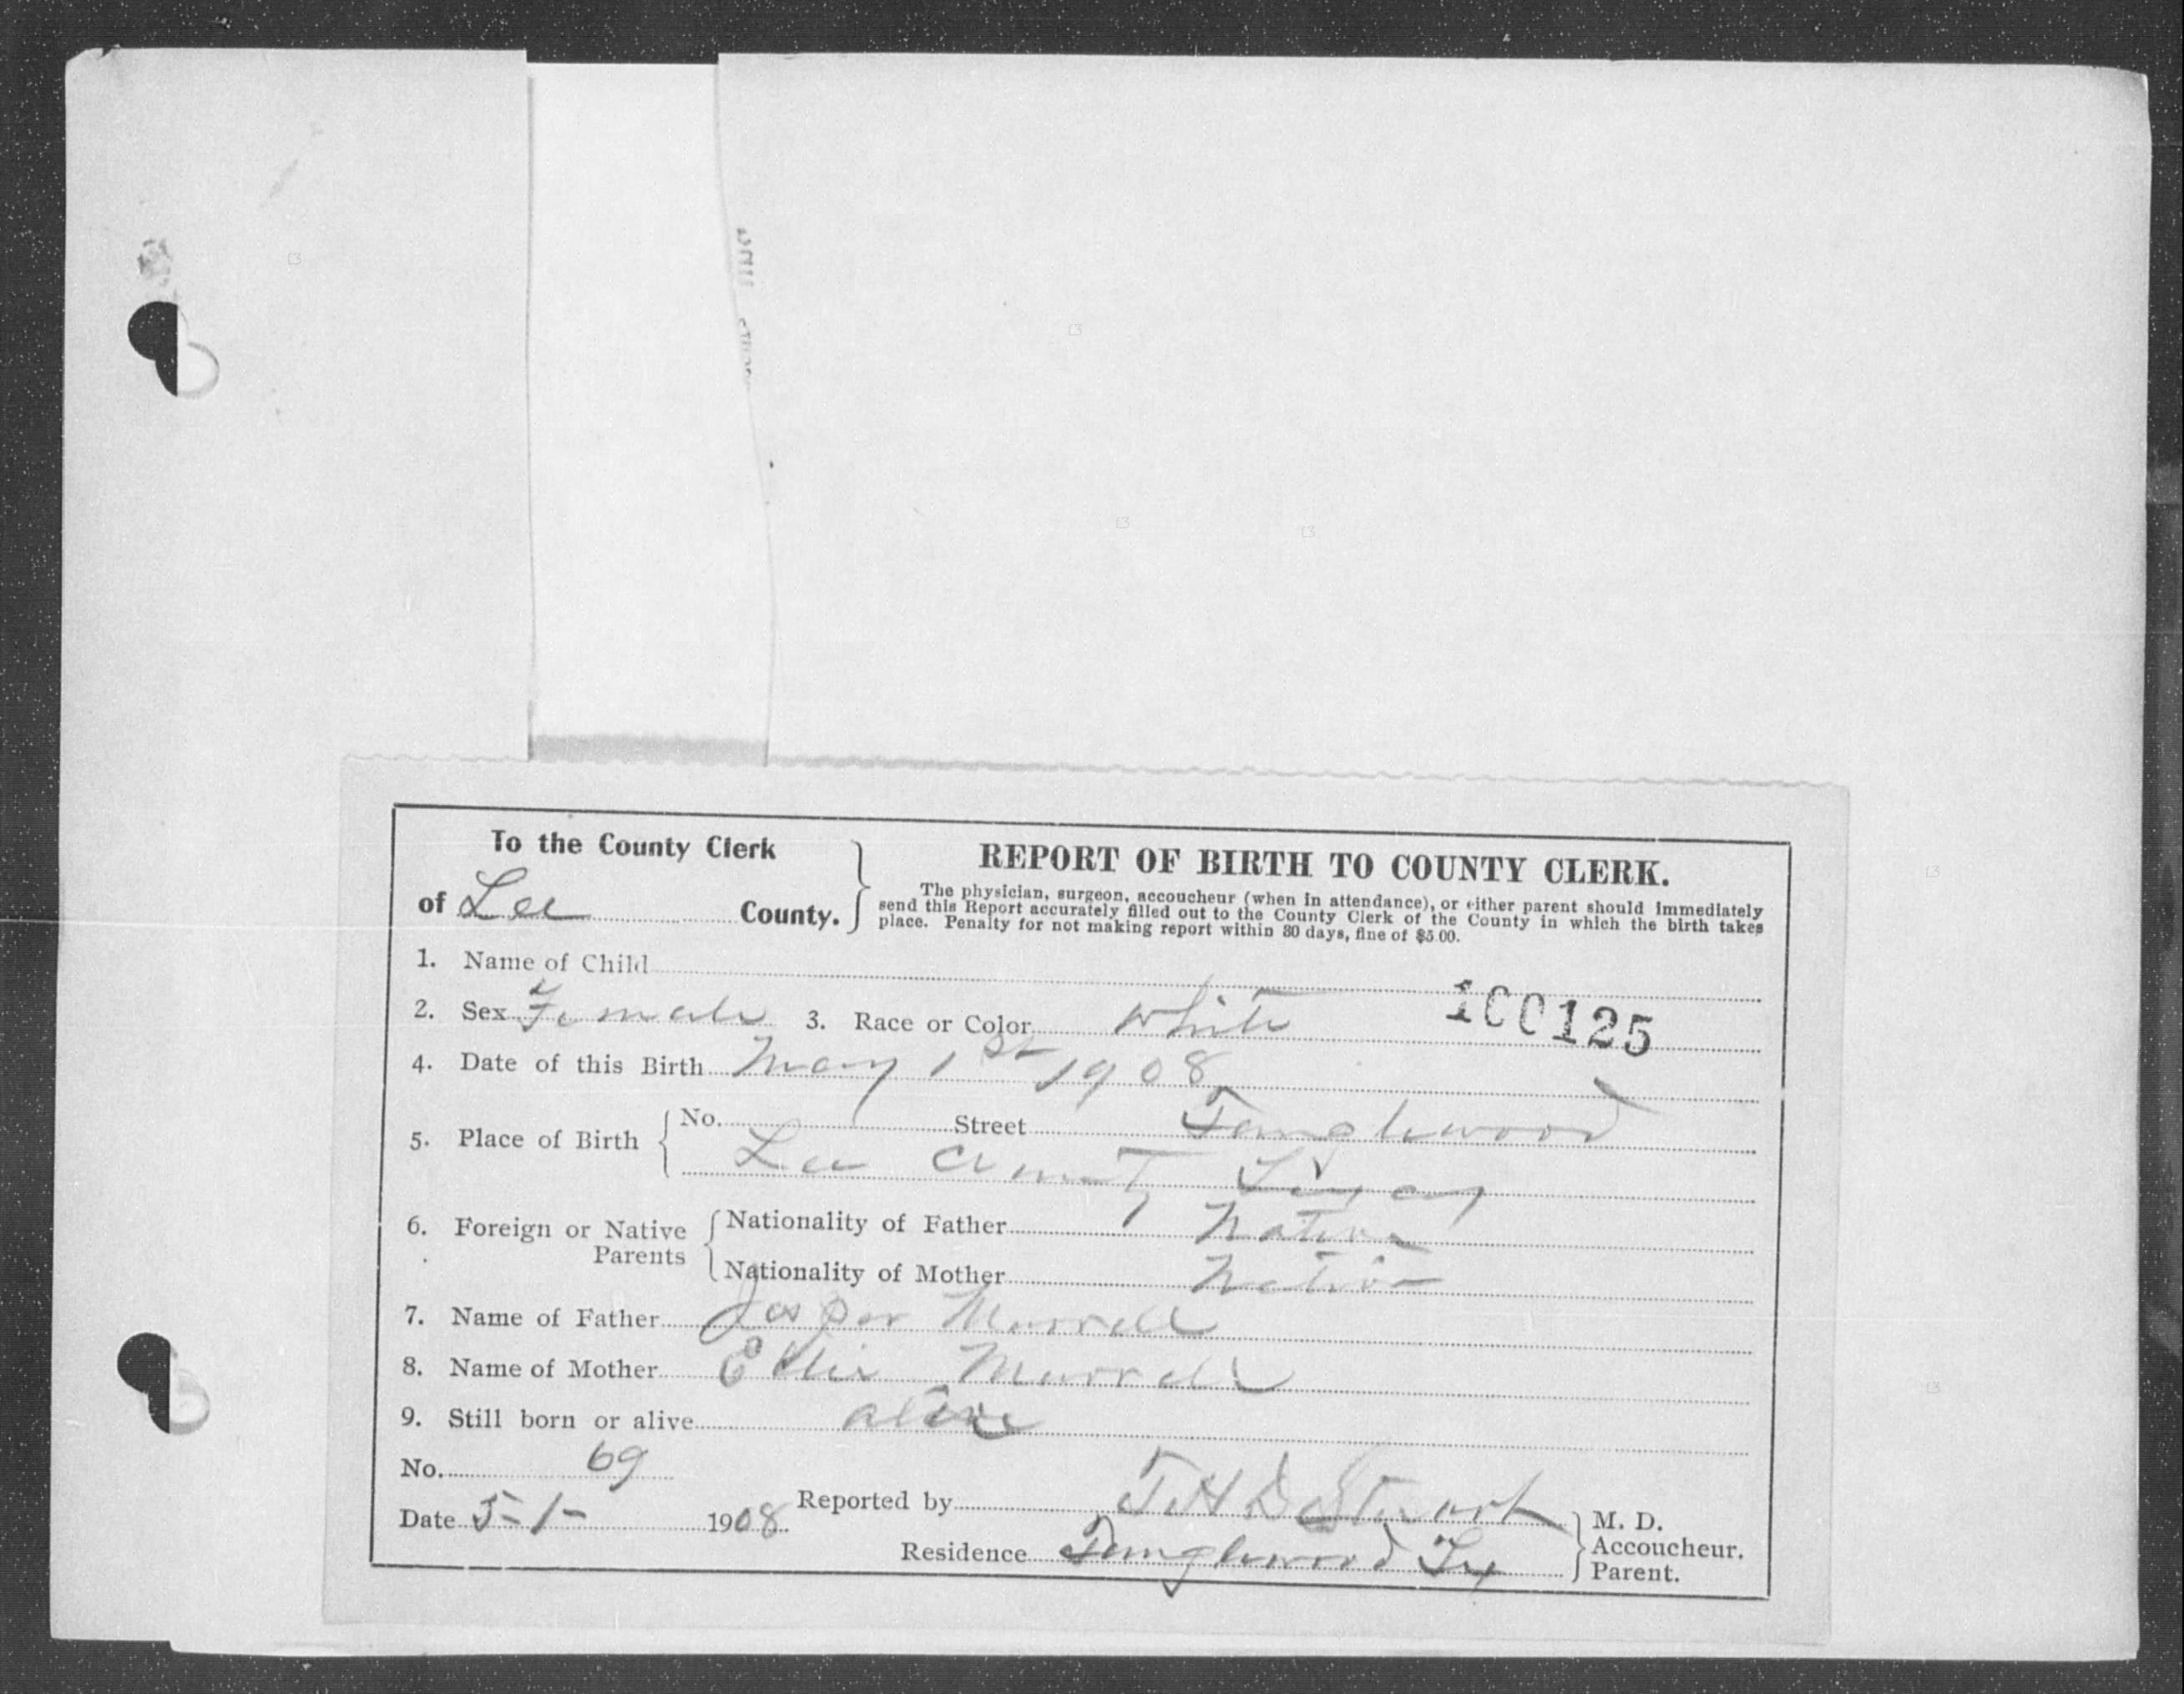 To the County Clerk
of Lee County.
REPORT OF BIRTH TO COUNTY CLERK.
The physician, surgeon, accoucheur (when in attendance), or either parent should immediately
send this Report accurately filled out to the County Clerk of the County in which the birth takes
place. Penalty for not making report within 30 days, fine of $5.00.
1. Name of Child
2. Sex Female 3. Race or Color White 100125
4. Date of this Birth May 1st 1908
5. Place of Birth No. Street Tanglewood
Lee County Texas
6. Foreign or Native Parents
Nationality of Father Native
Nationality of Mother Native
7. Name of Father Jasper Murrell
8. Name of Mother Murrell
9. Still born or alive alive
No. 69
Date 5-1- 1908
Reported by T H D Stuart
M. D.
Accoucheur.
Parent.
Residence Tanglewood Tx